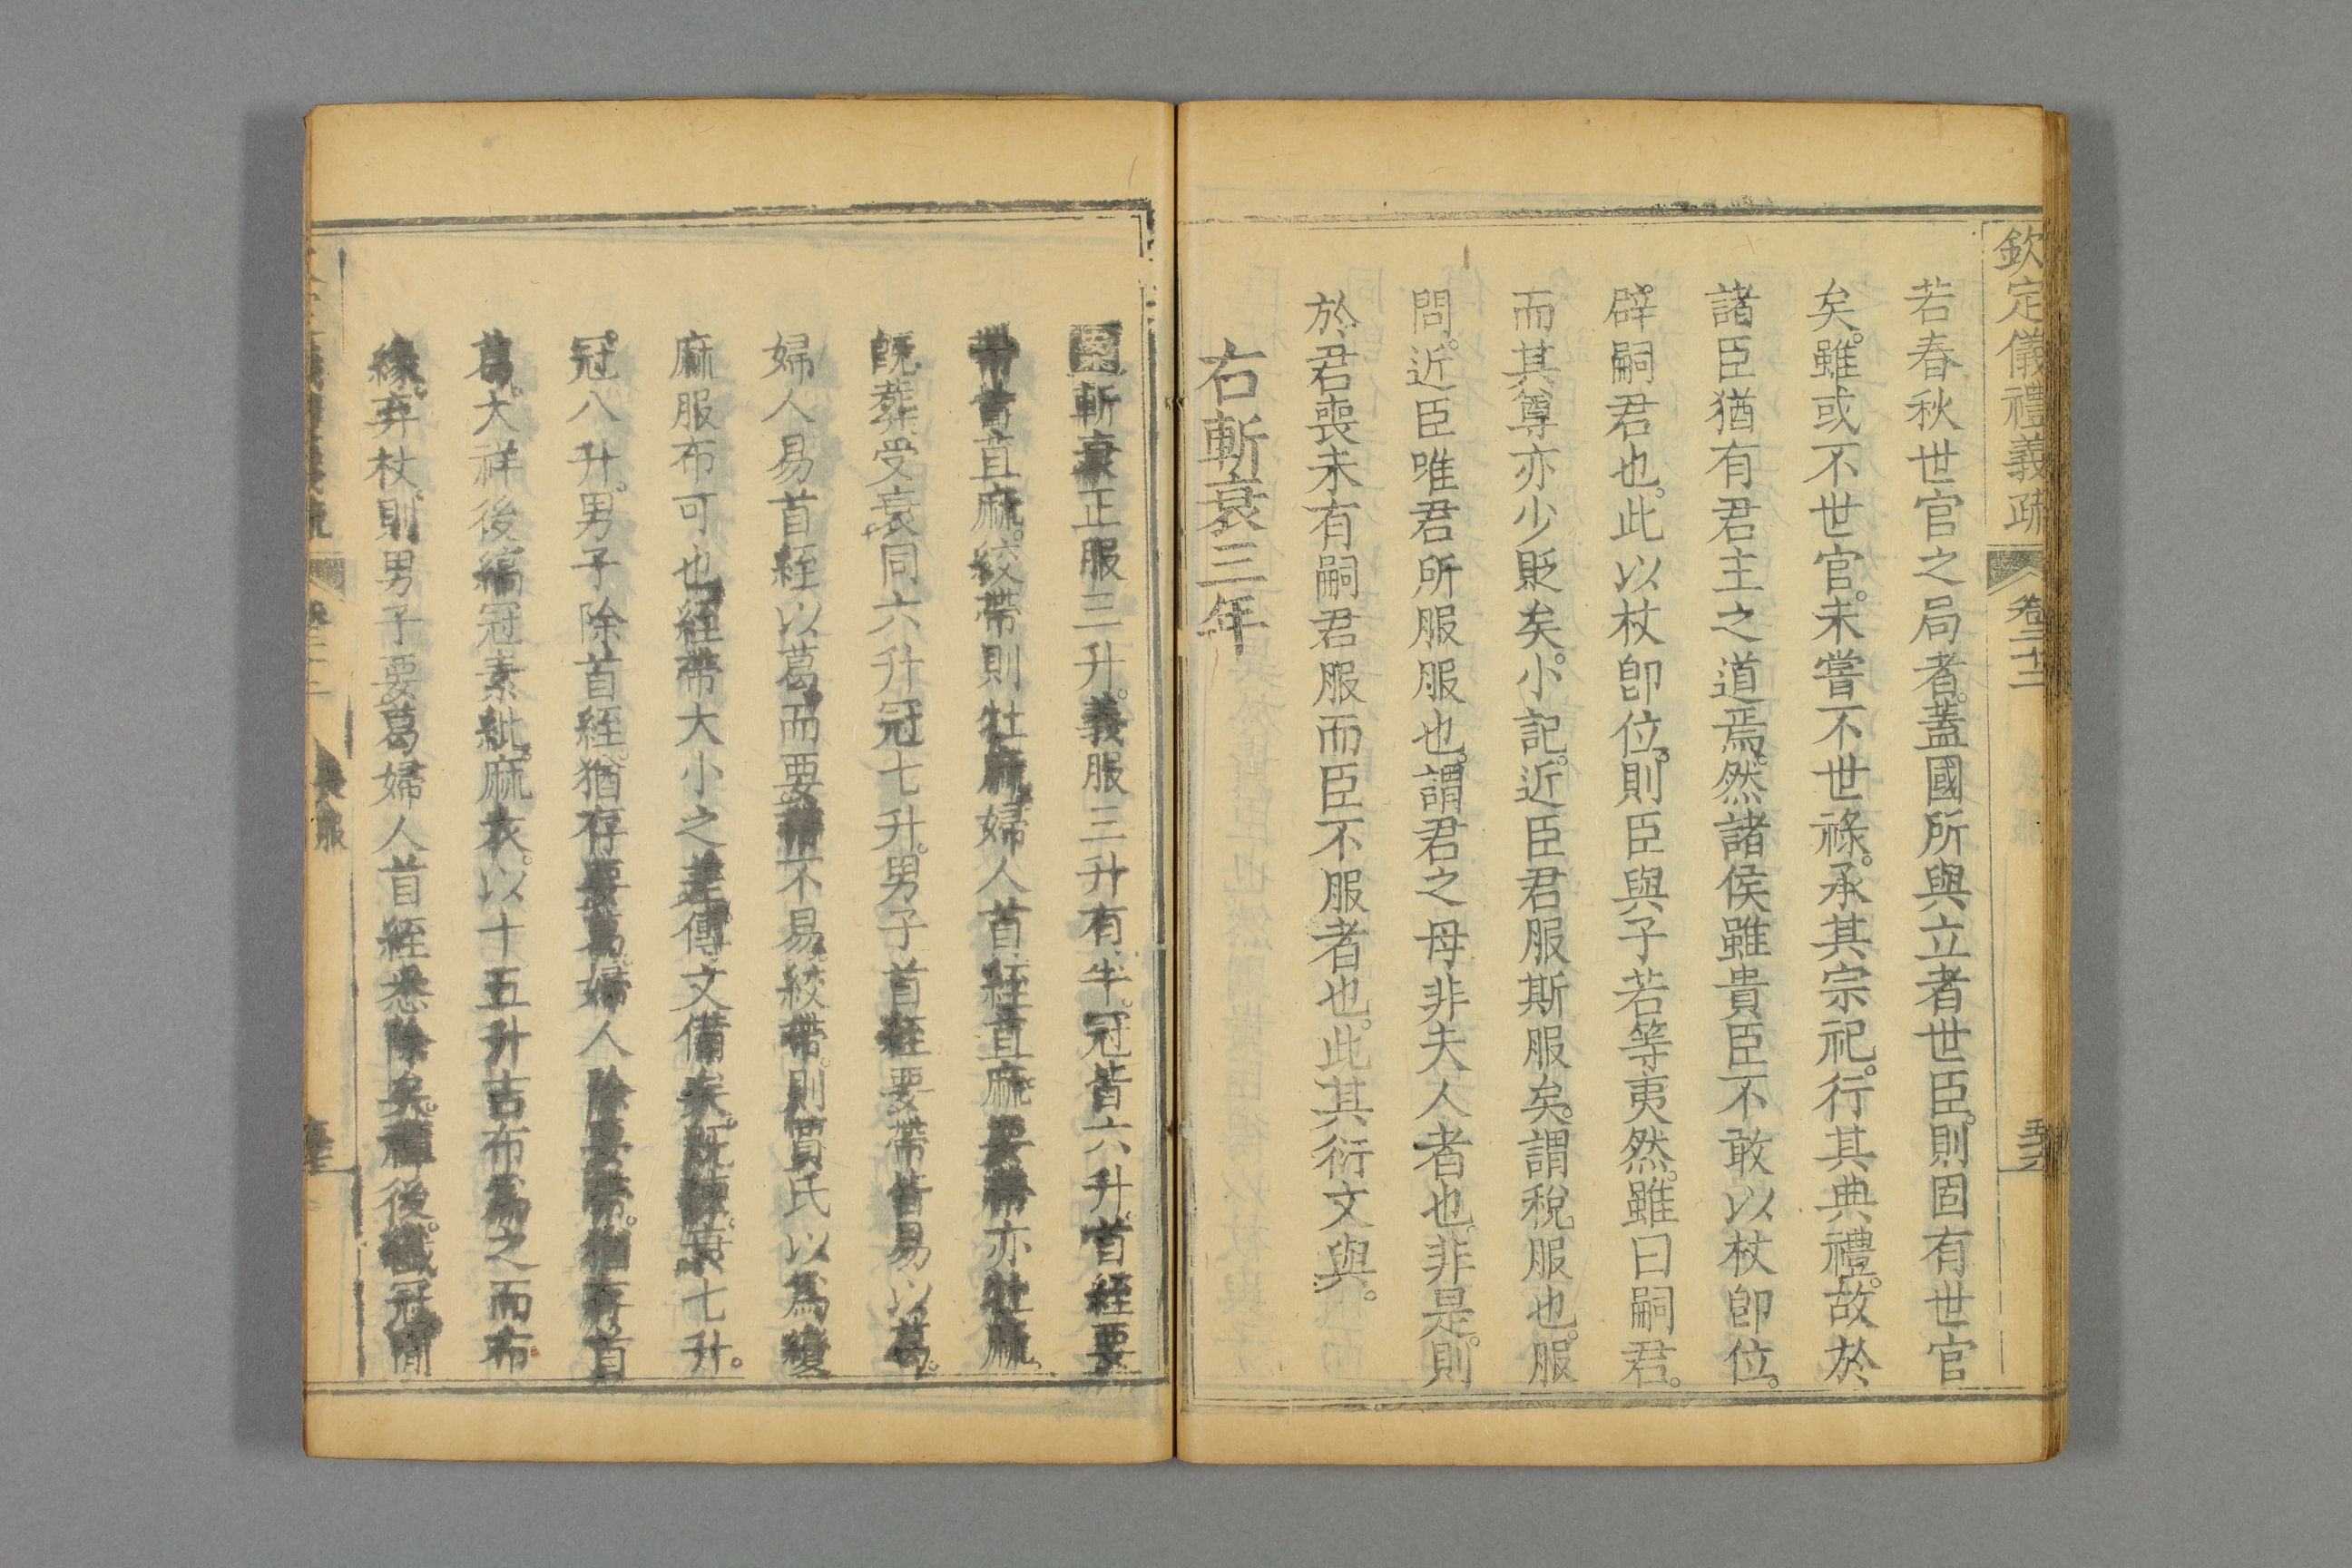 欽定儀禮義疏 卷二十二
若春秋世官之局者。蓋國所與立者世臣。則固有世官
矣。雖或不世官。未嘗不世祿。承其宗祀。行其典禮。故於
諸臣猶有君主之道焉。然諸侯雖貴臣不敢以杖卽位。
辟嗣君也。此以杖卽位。則臣與子若等夷然。雖曰嗣君。
而其尊亦少貶矣。小記。近臣君服斯服矣。謂稅服也。服
問。近臣唯君所服服也。謂君之母非夫人者也。非是。則
於君喪未有嗣君服而臣不服者也。此其衍文與。
右斬衰三年
斬衰正服三升。義服三升有半。冠皆六升。首絰要
帶首苴麻。絞帶則牡麻。婦人首絰苴麻要帶亦牡麻。
旣葬受衰同六升冠七升。男子首絰要帶皆易以葛。
婦人易首絰以葛。而要帶不易。絞帶。則賈氏以爲變
麻服布可也。絰帶大小之差。傳文備矣。旣練。衰七升。
冠八升。男子除首絰。猶存要葛。婦人除要帶。猶存首
葛。大祥後縞冠素紕。麻衣。以十五升吉布爲之而布
緣。弃杖。則男子要葛婦人首絰悉除矣。禫後。纖冠
喪服